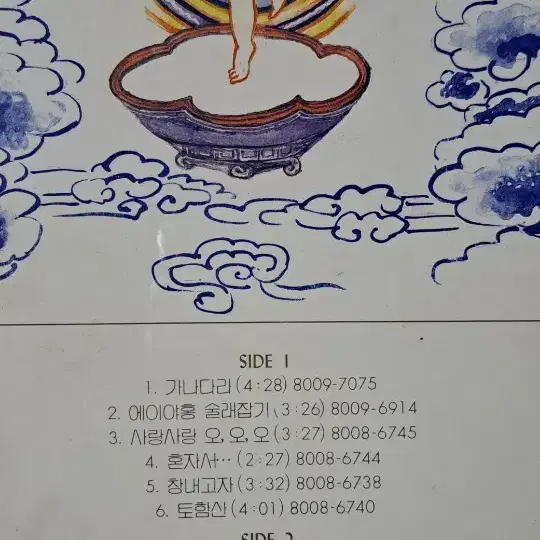 SIDE 1
1. 가나다라(4:28) 8009-7075
2. 에이야홍 술래잡기(3:26) 8009-6914
3. 사랑사랑 오,오,오(3:27) 8008-6745
4. 혼자서‥(2:27) 8008-6744
5. 창내고자(3:32) 8008-6738
6. 토함산(4:01) 8008-6740
SIDE 2